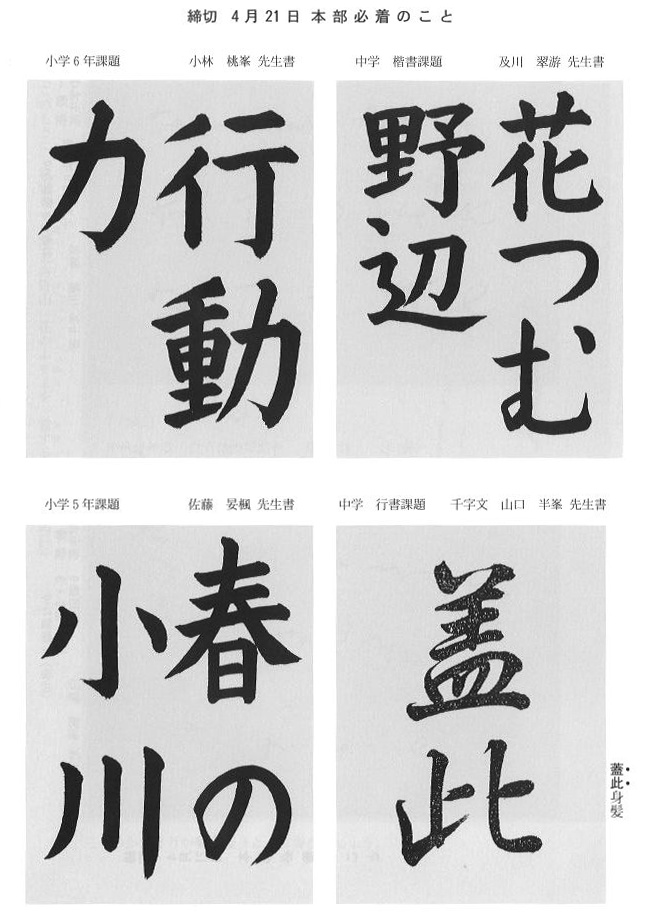 締切 4月21日本部必着のこと
中学 楷書課題 及川 翠游 先生書
花つむ
野辺
小学6年課題 小林 桃峯 先生書
行動
力
中学 行書課題 千字文 山口 半峯 先生書
蓋此
蓋此身髪
小学5年課題 佐藤 晏楓 先生書
春の
小川